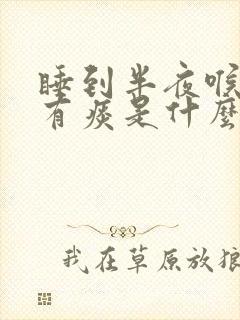 睡到半夜喉
有痰是什麼
我在草原放狼